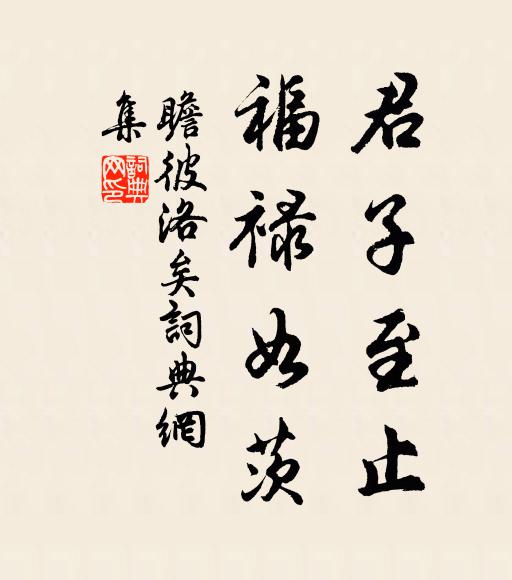 君子至止
福禄如茨
瞻彼洛矣詞典網
集
詞典網印